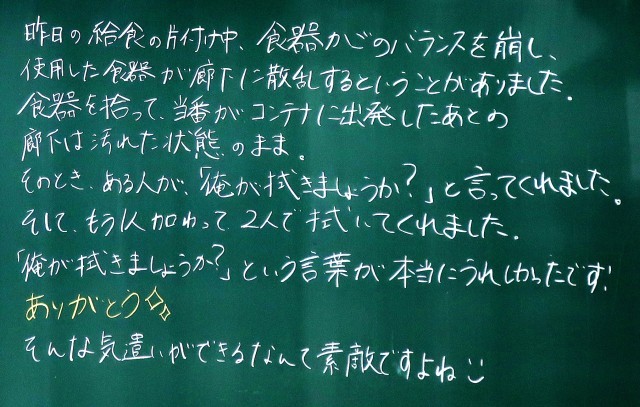 昨日の給食の片付け中、食器かごのバランスを崩し、
使用した食器が廊下に散乱するということがありました。
食器を拾って、当番がコンテナに出発したあとの
廊下は汚れた状態のまま。
そのとき、ある人が、「俺が拭きましょうか?」と言ってくれました。
そして、もう1人加わって、2人で拭いてくれました。
「俺が拭きましょうか?」という言葉が本当にうれしかったです!
ありがとう✨
そんな気遣いができるなんて素敵ですよね